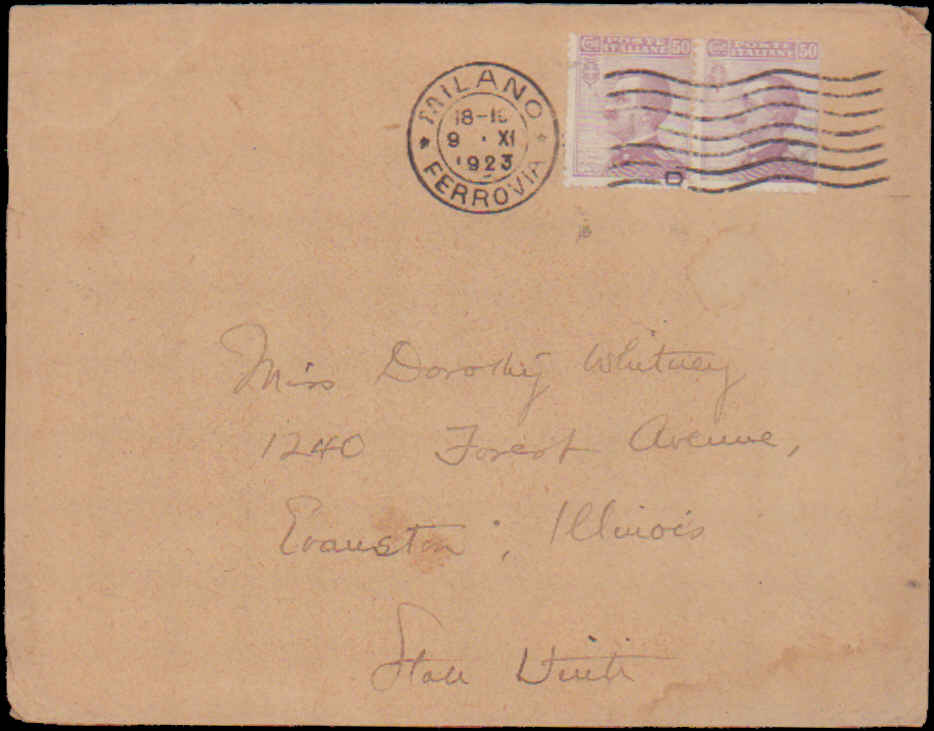 POSTE ITALIANE 50 POSTE ITALIANE 50
MILANO
18-1
9 · XI
1923
FERROVIA
Miss Dorothy Whitney
1240 Forest Avenue,
Evanston, Illinois
Stati Uniti